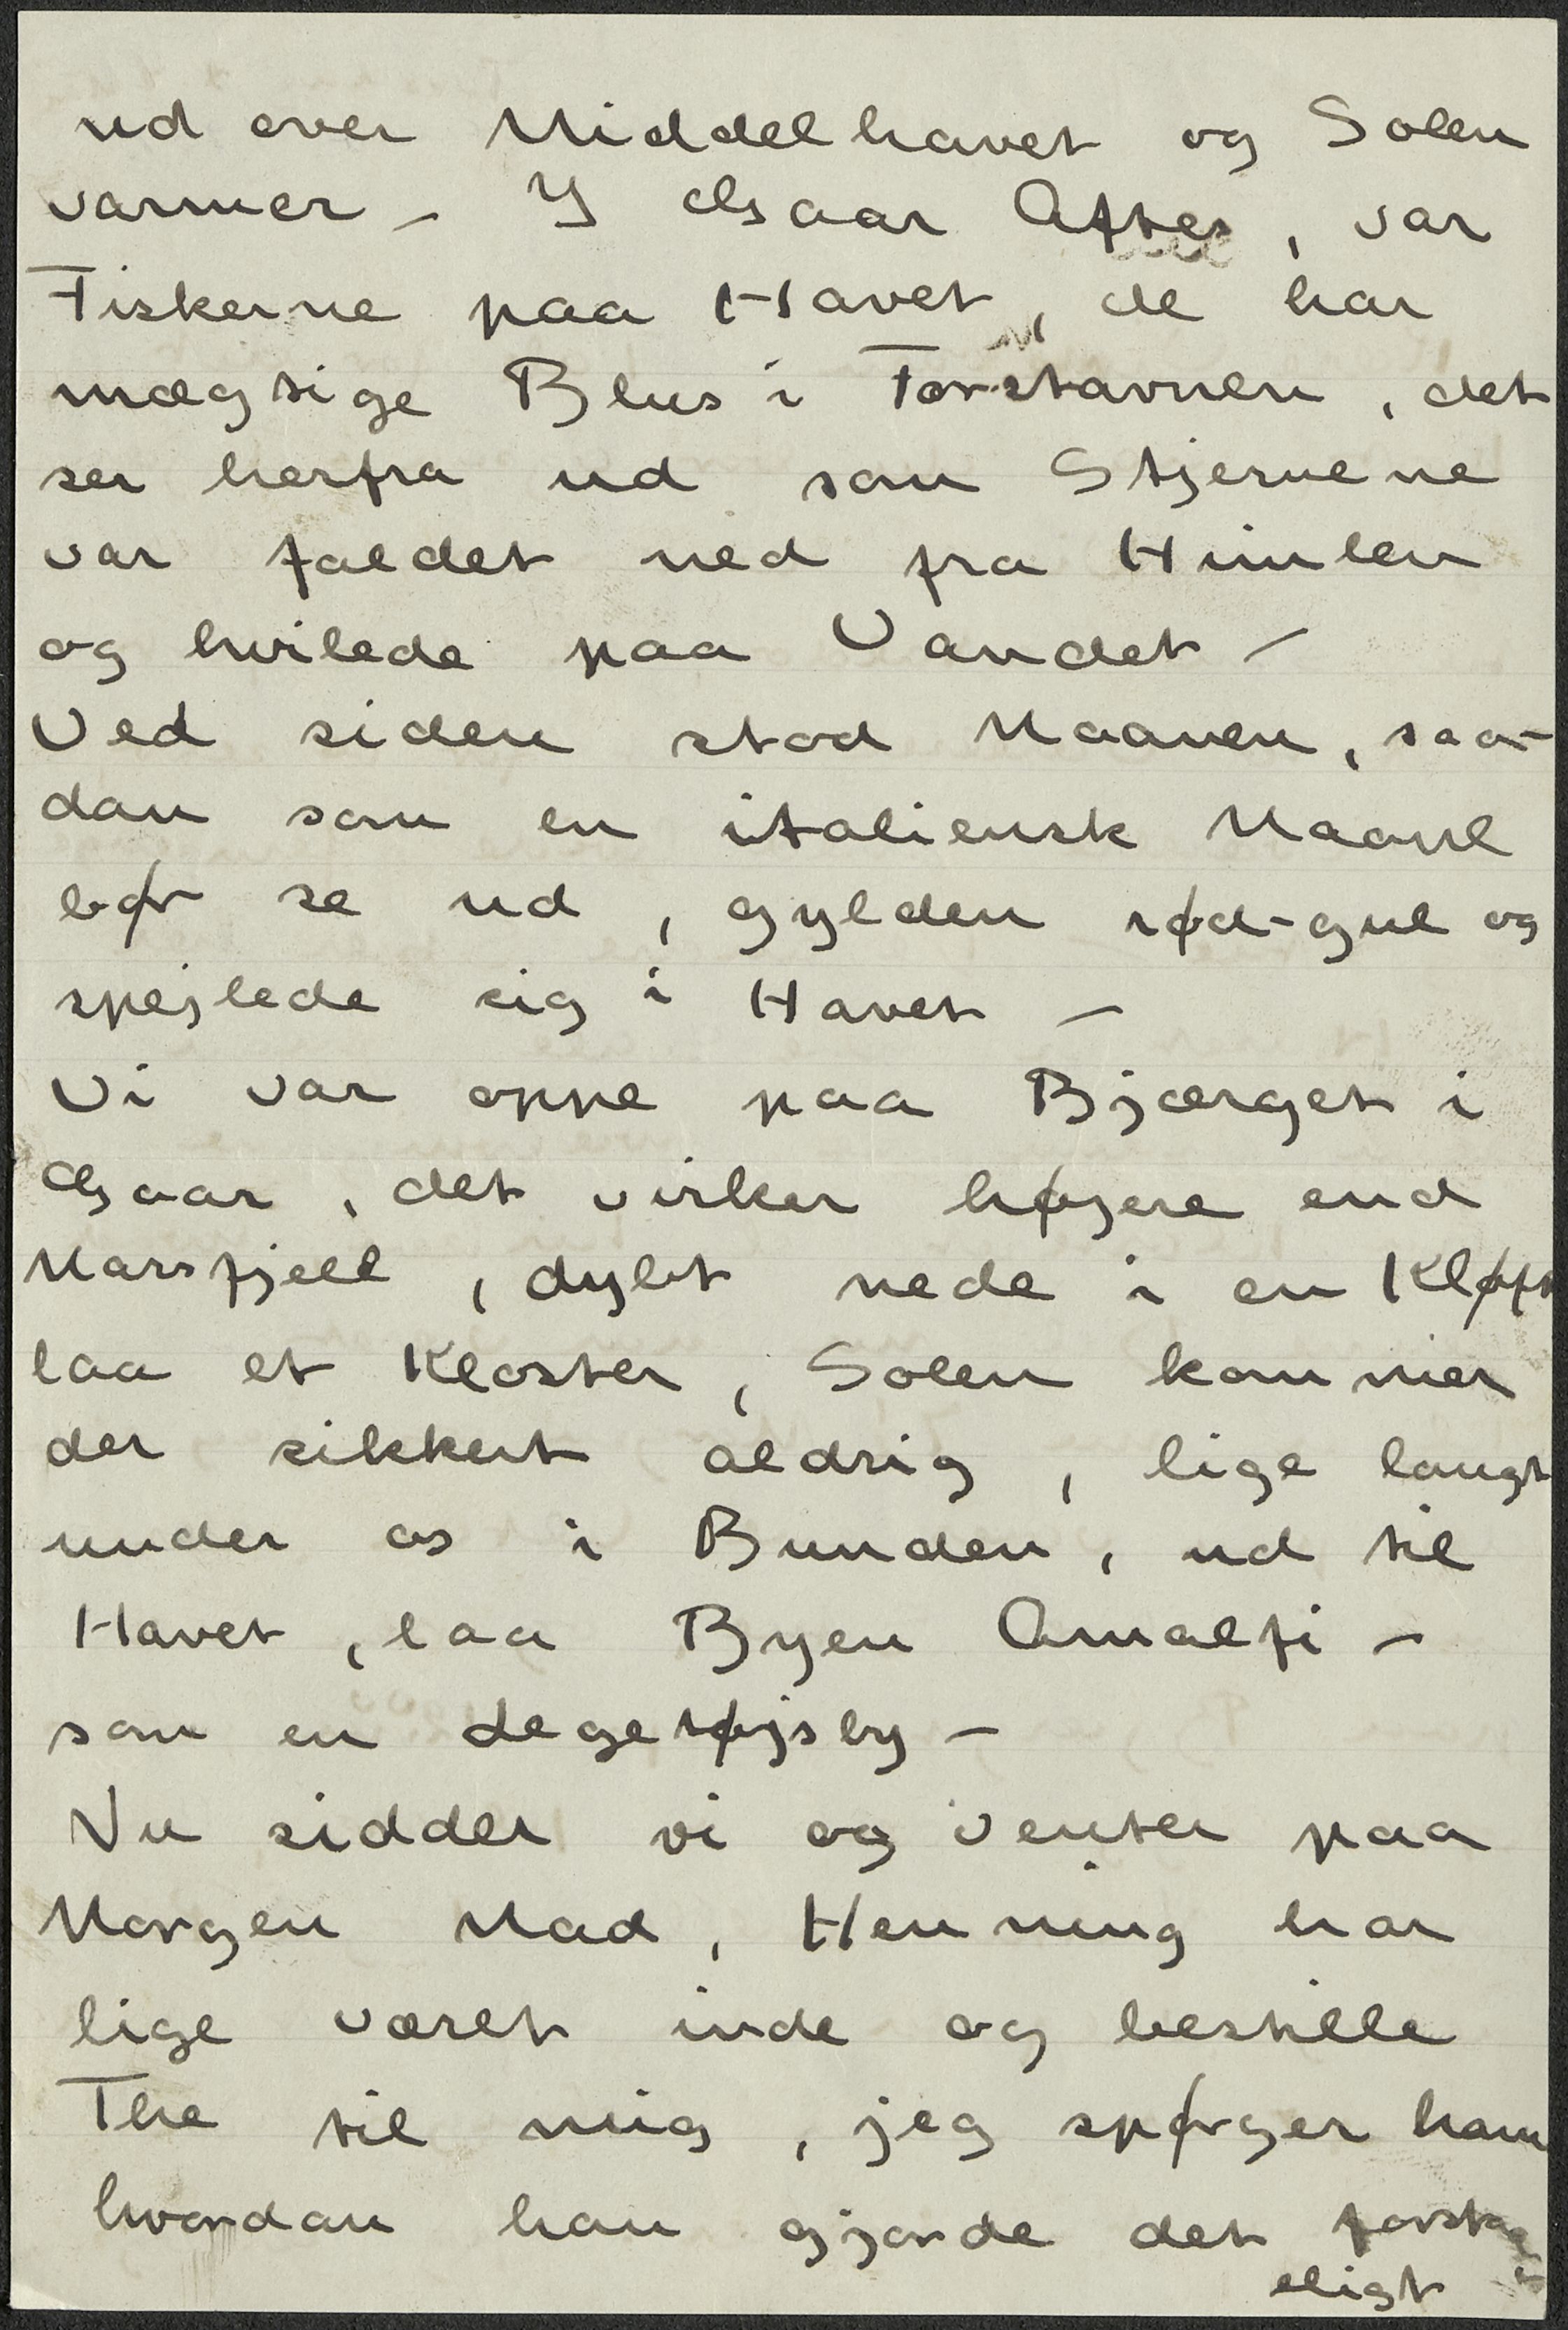 ud over Middelhavet og Solen
varmer – I Gaar Aftes, var
Fiskerne paa Havet, de har
mægtige Blus i Forstavnen, det
ser herfra ud som Stjernene
var faldet ned fra Himlen
og hvilede paa Vandet –
Ved siden stod Maanen, saa-
dan som en italiensk Maane
bør se ud, gylden rød-gul og
spejlede sig i Havet –
Vi var oppe paa Bjærget i
Gaar, det virker højere end
Marsfjell, dybt nede i en Kløft
laa et Kloster, Solen kommer
der sikkert aldrig, lige langt
under os i Bunden, ud til
Havet, laa Byen Amalfi –
som en Legetøjsby –
Nu sidder vi og venter paa
Morgen Mad, Henning har
lige været inde og bestille
The til mig, jeg spørger ham
hvordan han gjorde det forstaa
eligt